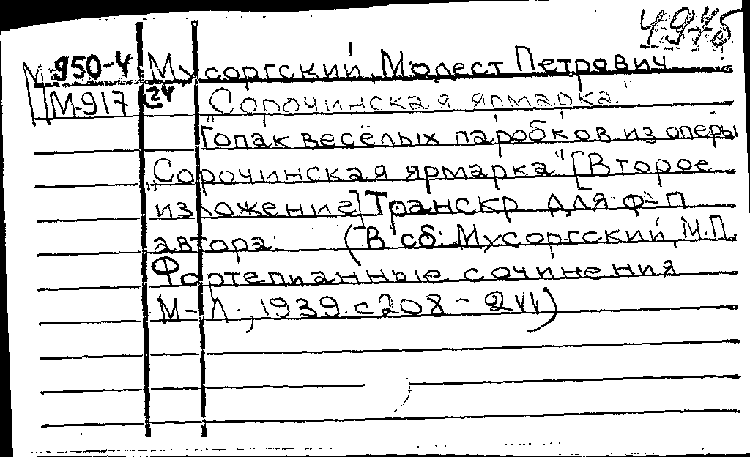 4975
М 950-4 Мусоргский, Модест Петрович
М-917 24 "Сорочинская ярмарка"
Гопак весёлых паробков из оперы
"Сорочинская ярмарка" [Второе
изложение] Транскр для ф-п
автора. (В сб: Мусоргский, М.П.
Фортепианные сочинения
М-Л., 1939. с 208-211)